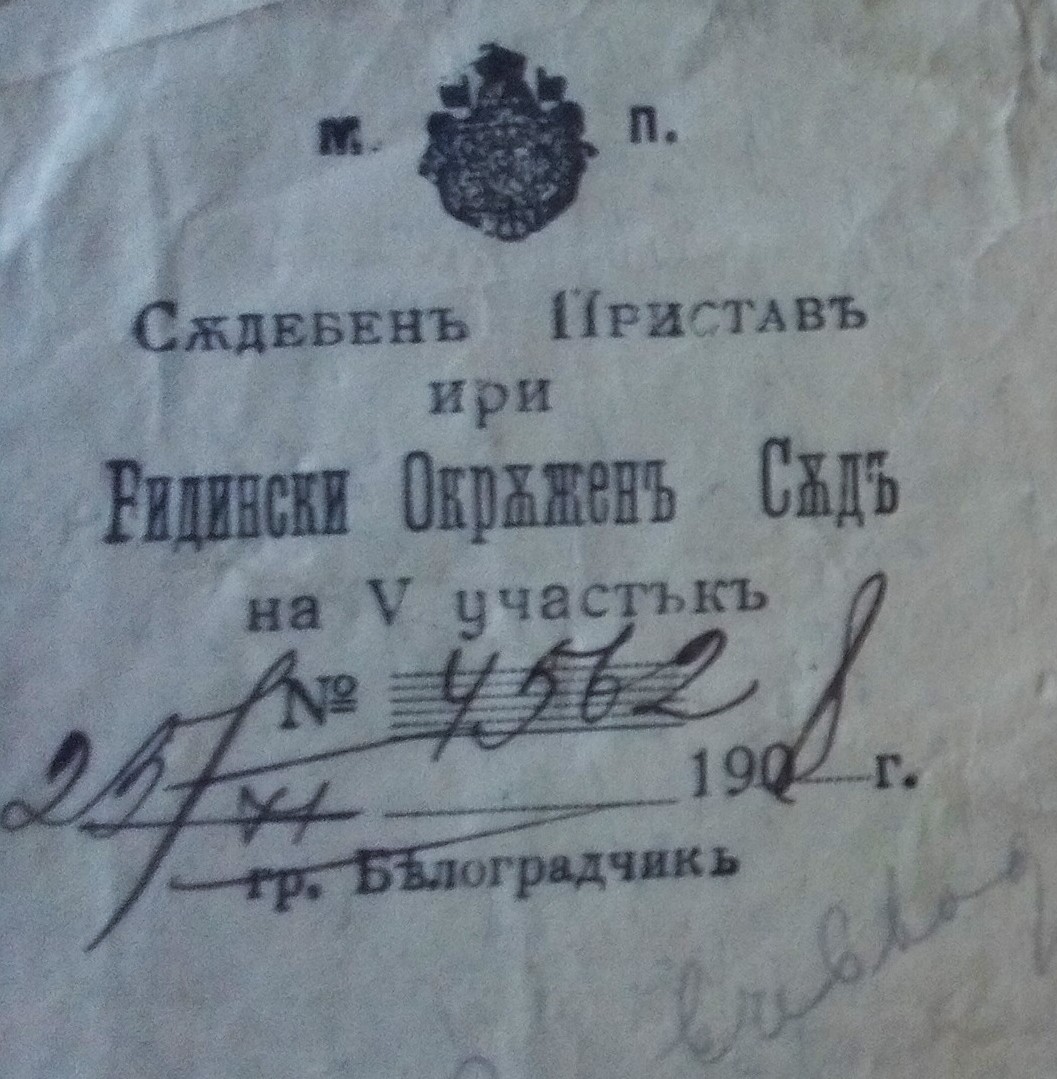 М. П.
Сѫдебенъ Приставъ
при
Видински Окрѫженъ Сѫдъ
на V участъкъ
№ 4562
25/XI 1908 г.
гр. Бѣлоградчикъ